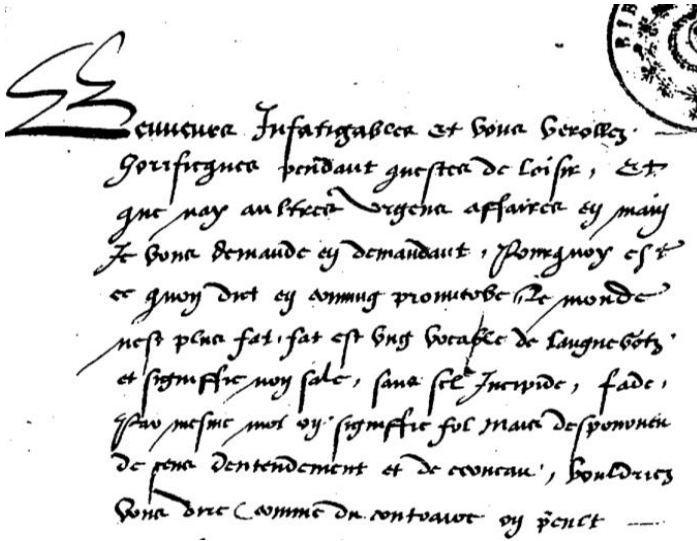 Beuveurs Infatigables et vous verollez
horrificques pendant questes de loisir, Et
que nay aultres urgens affaires en main
Je vous demande en demandant, Pourquoy est
ce quon dict en commung proverbe Le monde
nest plus fat, fat est ung vocable de languegotz
et signiffie non sale, sans sel Incipide, fade,
Par mesme mot on signiffie fol mais desporoveu
de sens dentendement et de cerveau, vouldriez
vous dire comme du contraire on peult
BI